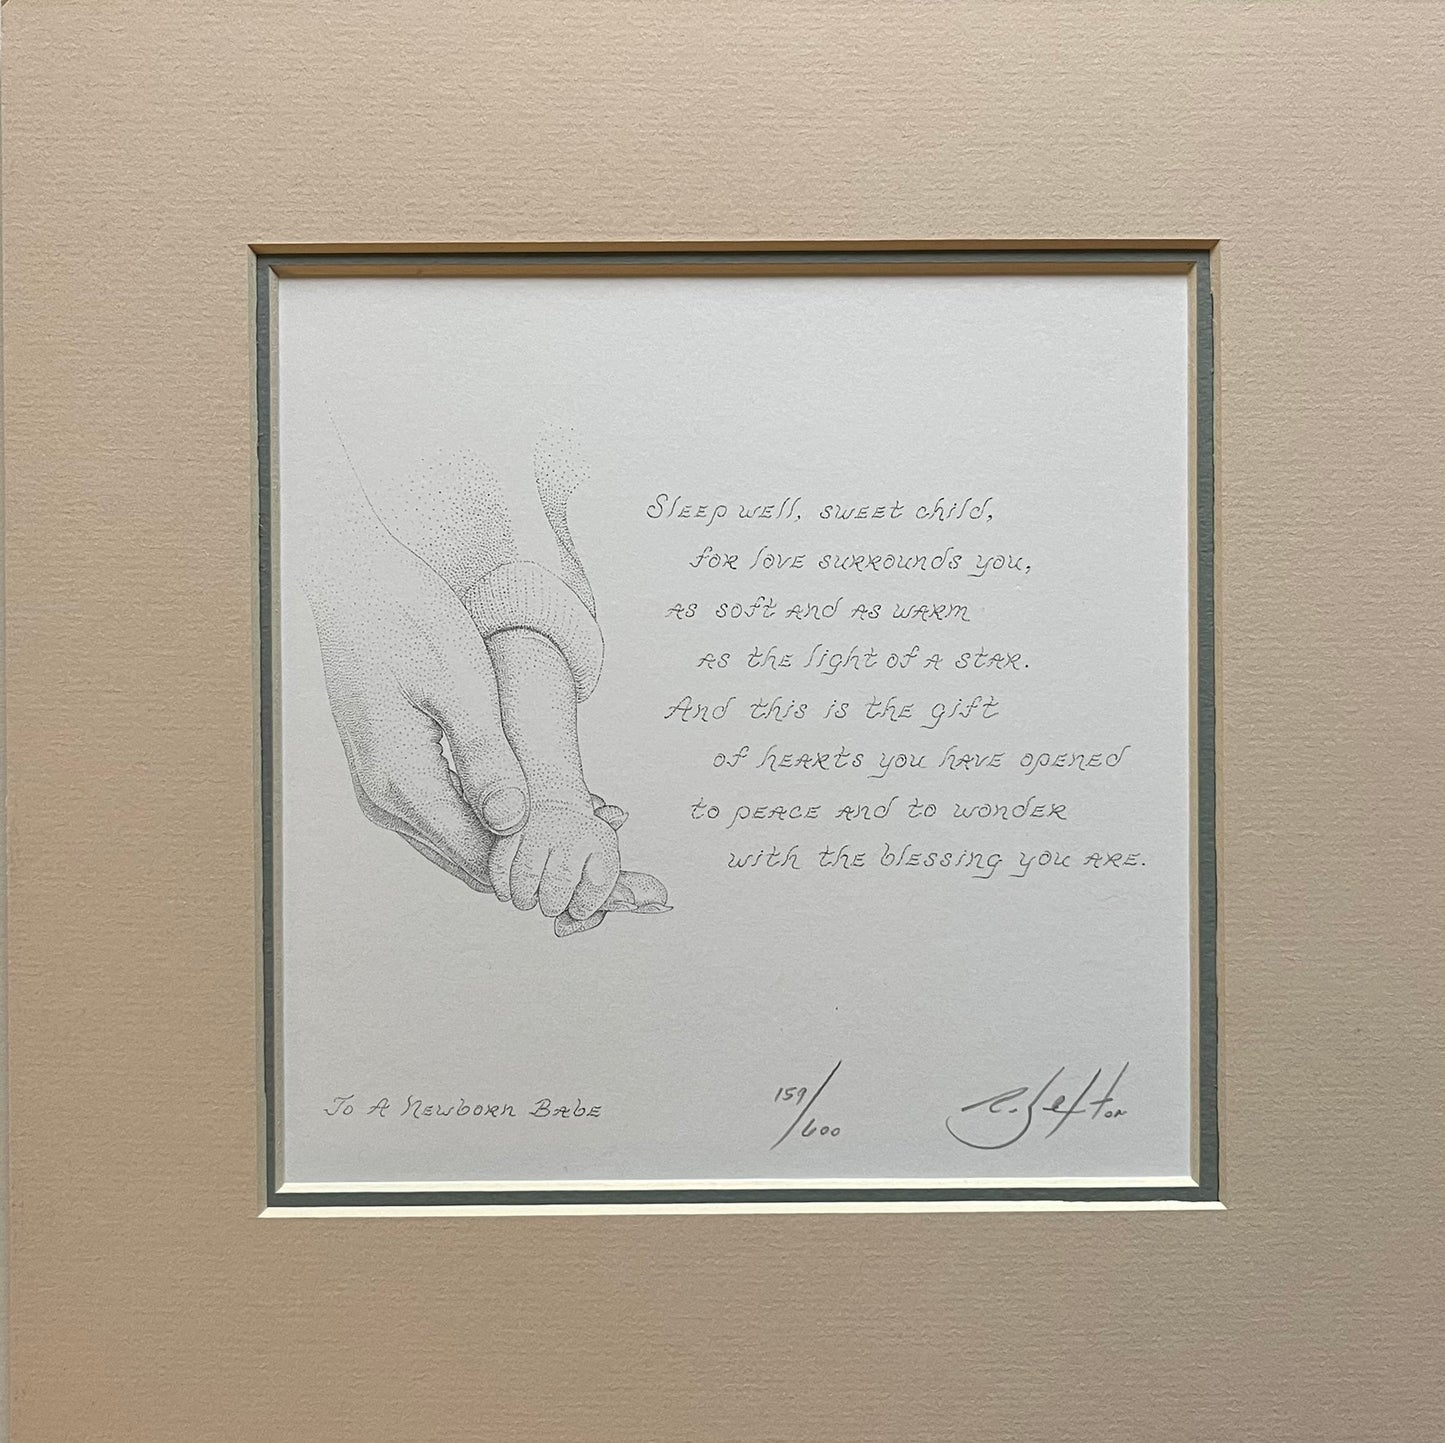 Sleep well, sweet child,
for love surrounds you,
as soft and as warm
as the light of a star.
And this is the gift
of hearts you have opened
to peace and to wonder
with the blessing you are.
To A Newborn Babe
159/600
R. Sexton